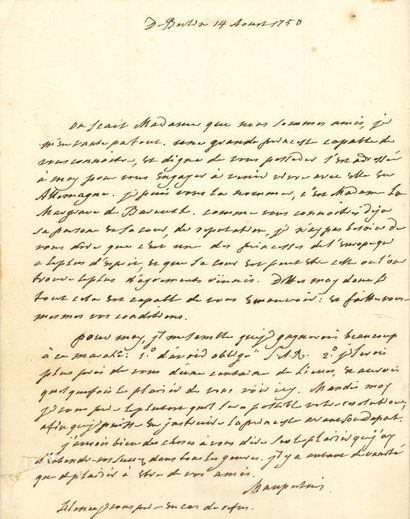 De Berlin 14 Aoust 1750
On scait Madame que nous sommes amis, je
m'en vante partout. une grande princesse capable de
vous connoitre, et digne de vous posseder s'est adressée
à moy pour vous engager à venir vivre avec elle en
Allemagne. je puis vous la nommer, c'est Madame la
Margrave de Bareith. comme vous connoissés deja
sa personne et sa cour, de reputation, je n'ay pas besoin de
vous dire que c'est une des princesses de l'Europe qui
a le plus d'esprit et que sa cour est peut etre celle ou l'on
trouve le plus d'agrements réunis. Dittes moy donc si
tout cela est capable de vous emouvoir: et faittes vous
mesmes vos conditions.
pour moy, il me semble que j'y gagnerois beaucoup
à ce marché: 1.° d'avoir obligé S.A.R. 2.° j'serois
plus près de vous d'une centaine de lieues, et aurois
quelquefois le plaisir de vous voir icy. Mandés moy
je vous prie le plutost qu'il sera possible votre resolution;
afin que j'puisse en instruire la princesse avant son depart.
j'aurois bien des choses à vous dire sur le plaisir qu'il y a
d'etendre ses succez dans tous les genres. il y a autant de vanité
que de plaisir à etre de vos amis.
Maupertuis
Le secret je vous prie en cas de refus.